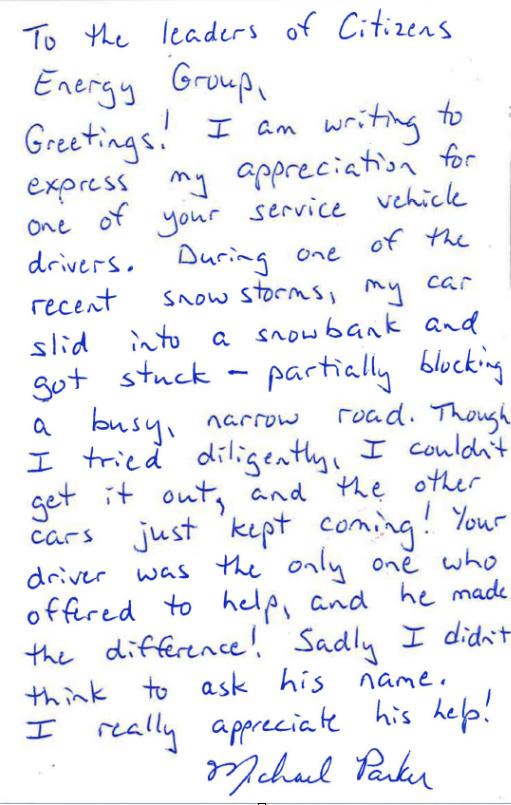 To the leaders of Citizens
Energy Group,
Greetings! I am writing to
express my appreciation for
one of your service vehicle
drivers. During one of the
recent snowstorms, my car
slid into a snowbank and
got stuck – partially blocking
a busy, narrow road. Though
I tried diligently, I couldn't
get it out, and the other
cars just kept coming! Your
driver was the only one who
offered to help, and he made
the difference! Sadly I didn't
think to ask his name.
I really appreciate his help!
Michael Parker